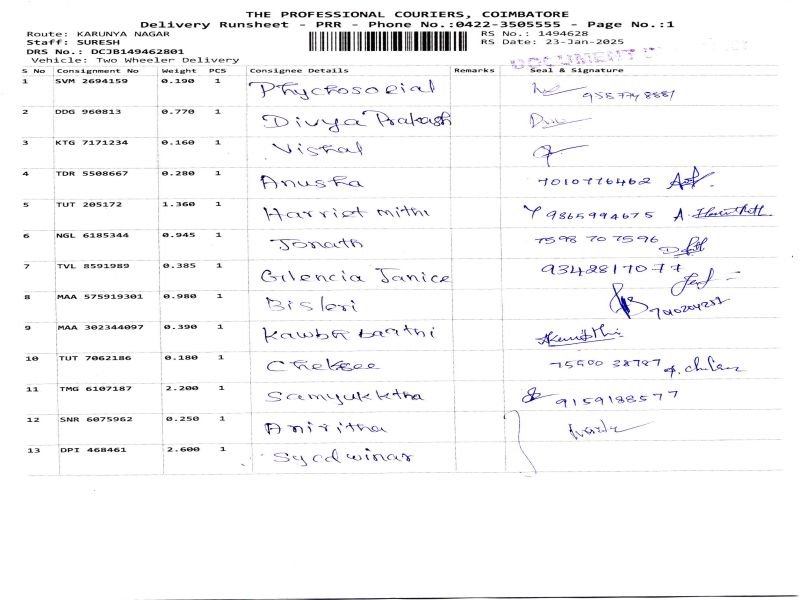 THE PROFESSIONAL COURIERS, COIMBATORE
Delivery Runsheet - PRR - Phone No.:0422-3505555 - Page No.:1
Route: KARUNYA NAGAR RS No.: 1494628
Staff: SURESH RS Date: 23-Jan-2025
DRS No.: DCJB149462801
Vehicle: Two Wheeler Delivery
S No Consignment No Weight PCS Consignee Details Remarks Seal & Signature
1 SVM 2694159 0.190 1 Phychosocial
2 DDG 960813 0.770 1 Divya Prakash
3 KTG 7171234 0.160 1 Vishal
4 TDR 5508667 0.280 1 Anusha 7010776462
5 TUT 205172 1.360 1 Harriet mithi 9865994675
6 NGL 6185344 0.945 1 Jonath 7598 707596
7 TVL 8591989 0.385 1 Glencia Janice 9342817077
8 MAA 575919301 0.980 1 Bisleri
9 MAA 302344097 0.390 1
10 TUT 7062186 0.180 1 Chelsee
11 TMG 6107187 2.200 1 Samyukktha 9159188577
12 SNR 6075962 0.250 1 Aniritha
13 DPI 468461 2.600 1 Syed winar